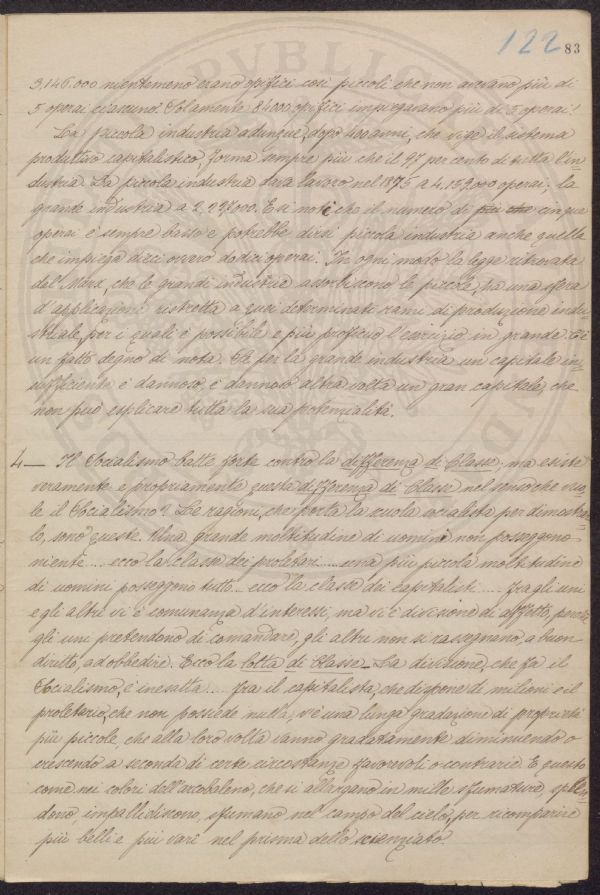 122 83
3.146.000 nientemeno erano opifici così piccoli che non avevano più di
5 operai ciascuno! Solamente 84000 opifici impiegavano più di 5 operai!
La piccola industria adunque, dopo 400 anni, che vige il sistema
produttivo capitalistico, forma sempre più che il 97 per cento di tutta l'in=
dustria. La piccola industria dava lavoro nel 1875 a 4.159000 operai; la
grande industria a 2.23.000. E si noti che il numero di più che cinque
operai è sempre basso e potrebbe dirsi piccola industria anche quella
che impiega dieci ovvero dodici operai. In ogni modo la legge ritrovata
dal Marx, che le grandi industrie assorbiscono le piccole, ha una sfera
d'applicazione ristretta a quei determinati rami di produzione indu
striale, per i quali è possibile e più proficuo l'esercizio in grande. E c'è
un fatto degno di nota. Se per la grande industria un capitale in=
sufficiente è dannoso, è dannoso altra volta un gran capitale, che
non può esplicare tutta la sua potenzialità.
4 — Il Socialismo batte forte contro la differenza di Classe; ma esiste
veramente e propriamente questa differenza di Classe nel senso che vuo=
le il Socialismo? Le ragioni, che porta la scuola socialista per dimostrar=
lo, sono queste. Una grande moltitudine di uomini non posseggono
niente .... ecco la classe dei proletari .... una più piccola moltitudine
di uomini posseggono tutto .. ecco la classe dei capitalisti .... Fra gli uni
e gli altri vi è comunanza d'interessi, ma vi è divisione di affetto, perchè
gli uni pretendono di comandare, gli altri non si rassegnano, a buon
diritto, ad obbedire. Ecco la lotta di Classe. La divisione, che fa il
Socialismo, è inesatta .... Fra il capitalista, che dispone di milioni e il
proletario, che non possiede nulla, v'è una lunga gradazione di proprietà
più piccole, che alla loro volta vanno gradatamente diminuendo o
crescendo a seconda di certe circostanze favorevoli o contrarie. E questo
come nei colori dell'arcobaleno, che si allargano in mille sfumature, splen
dono, impallidiscono, sfumano nel campo del cielo, per ricomparire
più belli e più vari nel prisma dello scienziato.